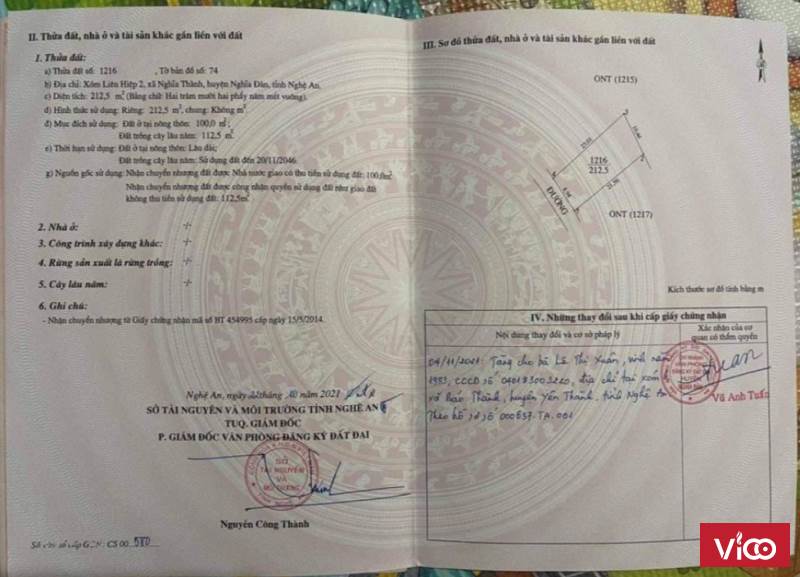 II. Thửa đất, nhà ở và tài sản khác gắn liền với đất
1. Thửa đất:
a) Thửa đất số: 1216 , Tờ bản đồ số: 74
b) Địa chỉ: Xóm Liên Hiệp 2, xã Nghĩa Thành, huyện Nghĩa Đàn, tỉnh Nghệ An.
c) Diện tích: 212,5 m² (Bằng chữ: Hai trăm mười hai phẩy năm mét vuông).
d) Hình thức sử dụng: Riêng: 212,5 m², chung: Không m²
đ) Mục đích sử dụng: Đất ở tại nông thôn: 100,0 m²;
Đất trồng cây lâu năm: 112,5 m²
e) Thời hạn sử dụng: Đất ở tại nông thôn: Lâu dài;
Đất trồng cây lâu năm: Sử dụng đất đến 20/11/2046.
g) Nguồn gốc sử dụng: Nhận chuyển nhượng đất được Nhà nước giao có thu tiền sử dụng đất: 100,0m²
Nhận chuyển nhượng đất được công nhận quyền sử dụng đất như giao đất
không thu tiền sử dụng đất: 112,5m²
2. Nhà ở:
3. Công trình xây dựng khác:
4. Rừng sản xuất là rừng trồng:
5. Cây lâu năm:
6. Ghi chú:
- Nhận chuyển nhượng từ Giấy chứng nhận mã số BT 454995 cấp ngày 15/5/2014.
Nghệ An, ngày tháng 10 năm 2021
SỞ TÀI NGUYÊN VÀ MÔI TRƯỜNG TỈNH NGHỆ AN
TUQ. GIÁM ĐỐC
P. GIÁM ĐỐC VĂN PHÒNG ĐĂNG KÝ ĐẤT ĐAI
SỞ
TÀI NGUYÊN
VÀ
MÔI TRƯỜNG
Nguyễn Công Thành
Số vào sổ cấp GCN: CS 00 580
III. Sơ đồ thửa đất, nhà ở và tài sản khác gắn liền với đất
ONT (1215)
1216
212,5
ĐƯỜNG
ONT (1217)
Kích thước sơ đồ tính bằng m
IV. Những thay đổi sau khi cấp giấy chứng nhận
Nội dung thay đổi và cơ sở pháp lý
Xác nhận của cơ
quan có thẩm quyền
04/11/2021: Tặng cho bà Lê Thị Xuân, sinh năm
1983, CCCD số 040183003220, địa chỉ tại xóm
xã Bảo Thành, huyện Yên Thành, tỉnh Nghệ An
Theo hồ sơ số 000637.TA.001
Vũ Anh Tuấn
Vico